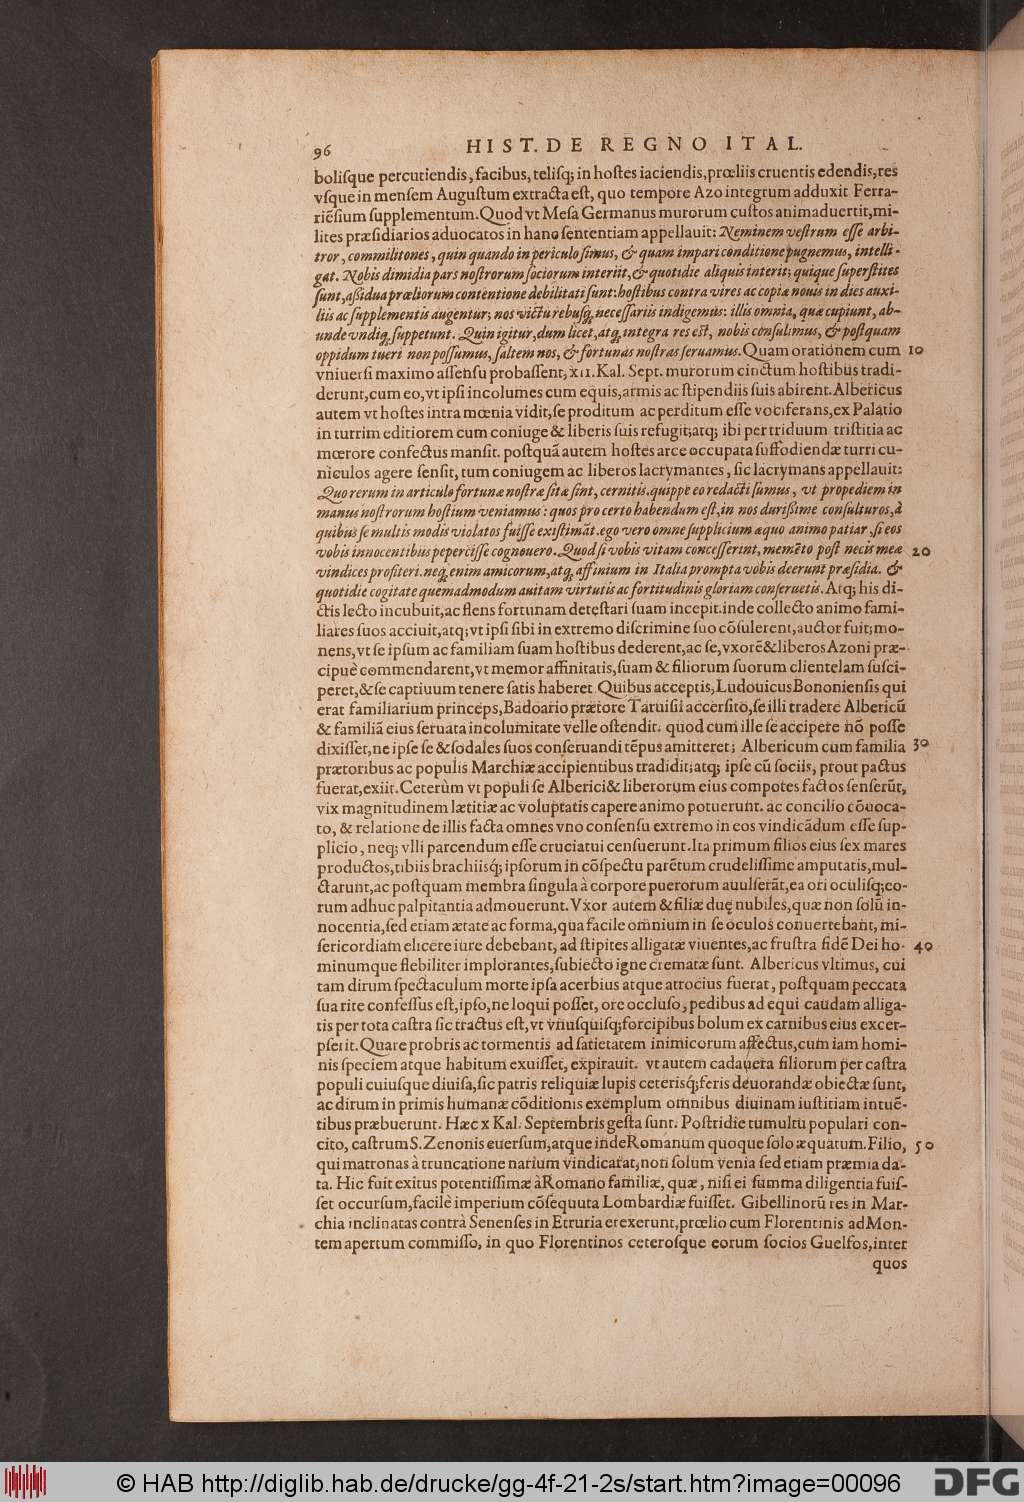 96 HIST. DE REGNO ITAL.
boliſque percutiendis, facibus, teliſq; in hoſtes iaciendis, prœliis cruentis edendis, res
vſque in menſem Auguſtum extracta eſt, quo tempore Azo integrum adduxit Ferra-
riēſium ſupplementum. Quod vt Meſa Germanus murorum cuſtos animaduertit, mi-
lites præſidiarios aduocatos in hanc ſententiam appellauit: Neminem veſtrum eſſe arbi-
tror, commilitones, quin quando in periculo ſimus, & quam impari conditione pugnemus, intelli-
gat. Nobis dimidia pars noſtrorum ſociorum interiit, & quotidie aliquis interit; quique ſuperſtites
ſunt, aſſidua prœliorum contentione debilitati ſunt: hoſtibus contra vires ac copiæ nouis in dies auxi-
liis ac ſupplementis augentur; nos victu rebuſq, neceſſariis indigemus: illis omnia, quæ cupiunt, ab-
unde vndiq, ſuppetunt. Quin igitur, dum licet, atq, integra res eſt, nobis conſulimus, & poſtquam
oppidum tueri non poſſumus, ſaltem nos, & fortunas noſtras ſeruamus. Quam orationem cum 10
vniuerſi maximo aſſenſu probaſſent, XII. Kal. Sept. murorum cinctum hoſtibus tradi-
derunt, cum eo, vt ipſi incolumes cum equis, armis ac ſtipendiis ſuis abirent. Albericus
autem vt hoſtes intra mœnia vidit, ſe proditum ac perditum eſſe vociferans, ex Palatio
in turrim editiorem cum coniuge & liberis ſuis refugit; atq; ibi per triduum triſtitia ac
mœrore confectus manſit. poſtquā autem hoſtes arce occupata ſuffodiendæ turri cu-
niculos agere ſenſit, tum coniugem ac liberos lacrymantes, ſic lacrymans appellauit:
Quo rerum in articulo fortunæ noſtræ ſitæ ſint, cernitis. quippe eo redacti ſumus, vt propediem in
manus noſtrorum hoſtium veniamus: quos pro certo habendum eſt, in nos duriſſime conſulturos, à
quibus ſe multis modis violatos fuiſſe exiſtimāt. ego vero omne ſupplicium æquo animo patiar, ſi eos
vobis innocentibus peperciſſe cognouero. Quod ſi vobis vitam conceſſerint, memēto poſt necis meæ 20
vindices profiteri. neq, enim amicorum, atq, affinium in Italia prompta vobis deerunt præſidia. &
quotidie cogitate quemadmodum auitam virtutis ac fortitudinis gloriam conſeruetis. Atq; his di-
ctis lecto incubuit, ac flens fortunam deteſtari ſuam incepit. inde collecto animo fami-
liares ſuos acciuit, atq; vt ipſi ſibi in extremo diſcrimine ſuo cōſulerent, auctor fuit; mo-
nens, vt ſe ipſum ac familiam ſuam hoſtibus dederent, ac ſe, vxorē & liberos Azoni præ-
cipuè commendarent, vt memor affinitatis, ſuam & filiorum ſuorum clientelam ſuſci-
peret, & ſe captiuum tenere ſatis haberet Quibus acceptis, Ludouicus Bononienſis qui
erat familiarium princeps, Badoario prætore Taruiſii accerſito, ſe illi tradere Albericū
& familiā eius ſeruata incolumitate velle oſtendit. quod cum ille ſe accipere nō poſſe
dixiſſet, ne ipſe ſe & ſodales ſuos conſeruandi tēpus amitteret; Albericum cum familia 30
prætoribus ac populis Marchiæ accipientibus tradidit; atq; ipſe cū ſociis, prout pactus
fuerat, exiit. Ceterùm vt populi ſe Alberici & liberorum eius compotes factos ſenſerūt,
vix magnitudinem lætitiæ ac voluptatis capere animo potuerunt. ac concilio cōuoca-
to, & relatione de illis facta omnes vno conſenſu extremo in eos vindicādum eſſe ſup-
plicio, neq; vlli parcendum eſſe cruciatui cenſuerunt. Ita primum filios eius ſex mares
productos, tibiis brachiiſq́; ipſorum in cōſpectu parētum crudeliſſime amputatis, mul-
ctarunt, ac poſtquam membra ſingula à corpore puerorum auulſerāt, ea ori oculiſq; eo-
rum adhuc palpitantia admouerunt. Vxor autem & filiæ duę nubiles, quæ non ſolū in-
nocentia, ſed etiam ætate ac forma, qua facile omnium in ſe oculos conuertebant, mi-
ſericordiam elicere iure debebant, ad ſtipites alligatæ viuentes, ac fruſtra fidē Dei ho- 40
minumque flebiliter implorantes, ſubiecto igne crematæ ſunt. Albericus vltimus, cui
tam dirum ſpectaculum morte ipſa acerbius atque atrocius fuerat, poſtquam peccata
ſua rite confeſſus eſt, ipſo, ne loqui poſſet, ore occluſo, pedibus ad equi caudam alliga-
tis per tota caſtra ſic tractus eſt, vt vnuſquiſq; forcipibus bolum ex carnibus eius excer-
pſerit. Quare probris ac tormentis ad ſatietatem inimicorum affectus, cum iam homi-
nis ſpeciem atque habitum exuiſſet, expirauit. vt autem cadauera filiorum per caſtra
populi cuiuſque diuiſa, ſic patris reliquiæ lupis ceteriſq́; feris deuorandæ obiectæ ſunt,
ac dirum in primis humanæ cōditionis exemplum omnibus diuinam iuſtitiam intuē-
tibus præbuerunt. Hæc X Kal. Septembris geſta ſunt. Poſtridie tumultu populari con-
cito, caſtrum S. Zenonis euerſum, atque inde Romanum quoque ſolo æquatum. Filio, 50
qui matronas à truncatione narium vindicarat, non ſolum venia ſed etiam præmia da-
ta. Hic fuit exitus potentiſſimæ à Romano familiæ, quæ, niſi ei ſumma diligentia fuiſ-
ſet occurſum, facilè imperium cōſequuta Lombardiæ fuiſſet. Gibellinorū res in Mar-
chia inclinatas contrà Senenſes in Etruria erexerunt, prœlio cum Florentinis ad Mon-
tem apertum commiſſo, in quo Florentinos ceteroſque eorum ſocios Guelfos, inter
quos
© HAB http://diglib.hab.de/drucke/gg-4f-21-2s/start.htm?image=00096
DFG